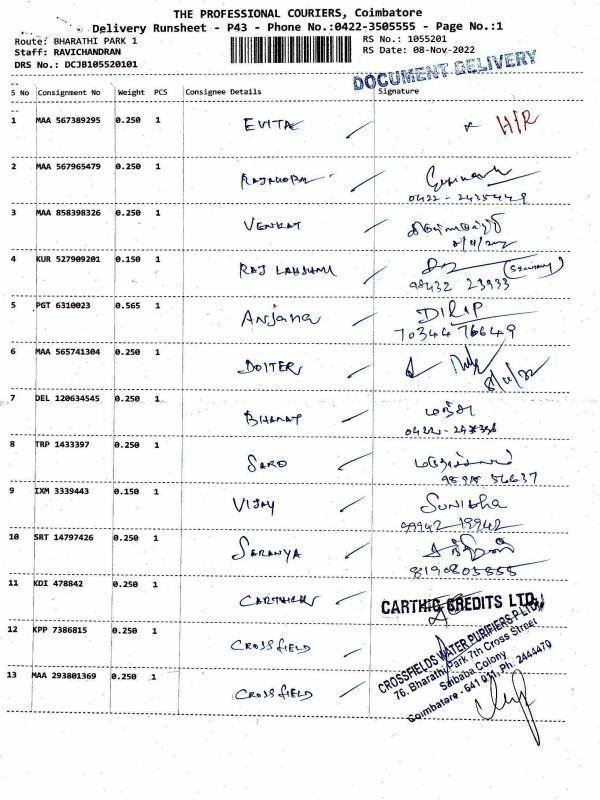 THE PROFESSIONAL COURIERS, Coimbatore
Delivery Runsheet - P43 - Phone No.:0422-3505555 - Page No.:1
Route: BHARATHI PARK 1
RS No.: 1055201
Staff: RAVICHANDRAN
RS Date: 08-Nov-2022
DRS No.: DCJB105520101
DOCUMENT DELIVERY
S No Consignment No Weight PCS Consignee Details Signature
1 MAA 567389295 0.250 1 EVITA H/R
2 MAA 567965479 0.250 1
0422 - 2435449
3 MAA 858398326 0.250 1 VENKAT
4 KUR 527909201 0.150 1 RAJ LAKSHMI
98432 23933
5 PGT 6310023 0.565 1 Anjana DILIP
70344 76649
6 MAA 565741304 0.250 1 DOITER
8/11/22
7 DEL 120634545 0.250 1 BHARAT
8 TRP 1433397 0.250 1 SARO
9 IXM 3339443 0.150 1 VIJAY SUNIBHA
99942 19942
10 SRT 14797426 0.250 1 SARANYA
8190805555
11 KDI 478842 0.250 1 CARTHICK CARTHIC CREDITS LTD.,
12 KPP 7386815 0.250 1 CROSSFIELD
CROSSFIELDS WATER PURIFIERS P-LTD
76, Bharathi Park 7th Cross Street
Saibaba Colony
Coimbatore - 641 011, Ph: 2444470
13 MAA 293801369 0.250 1 CROSSFIELD